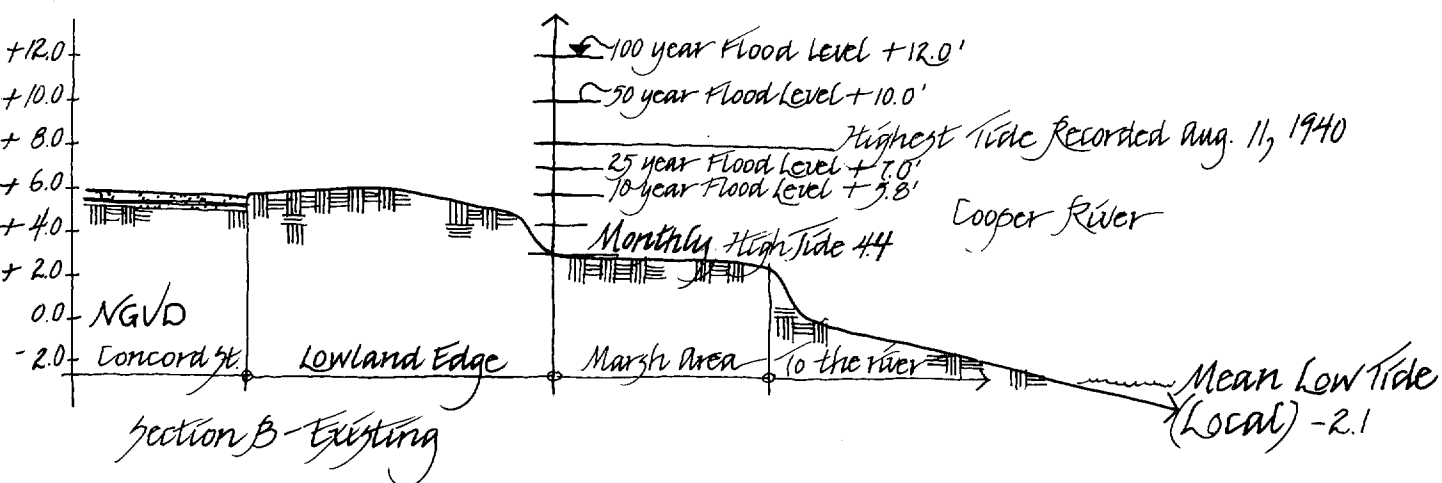 +12.0
+10.0
+ 8.0
+ 6.0
+ 4.0
+ 2.0
0.0
- 2.0
100 year Flood Level +12.0'
50 year Flood Level + 10.0'
Highest Tide Recorded Aug. 11, 1940
25 year Flood Level + 7.0'
10 year Flood Level + 5.8'
Cooper River
Monthly High Tide 4.4
NGVD
Concord St.
Lowland Edge
Marsh Area
To the river
Mean Low Tide
(Local) -2.1
Section B - Existing